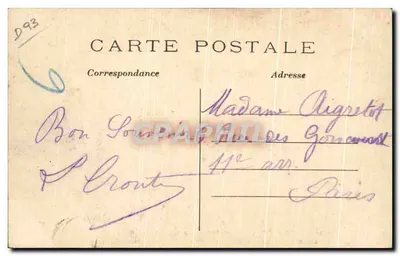 D93
CARTE POSTALE
Correspondance
Adresse
6
Bon Souvenir
Madame Aigretot
Rue des Goncourt
11e arr.
Paris